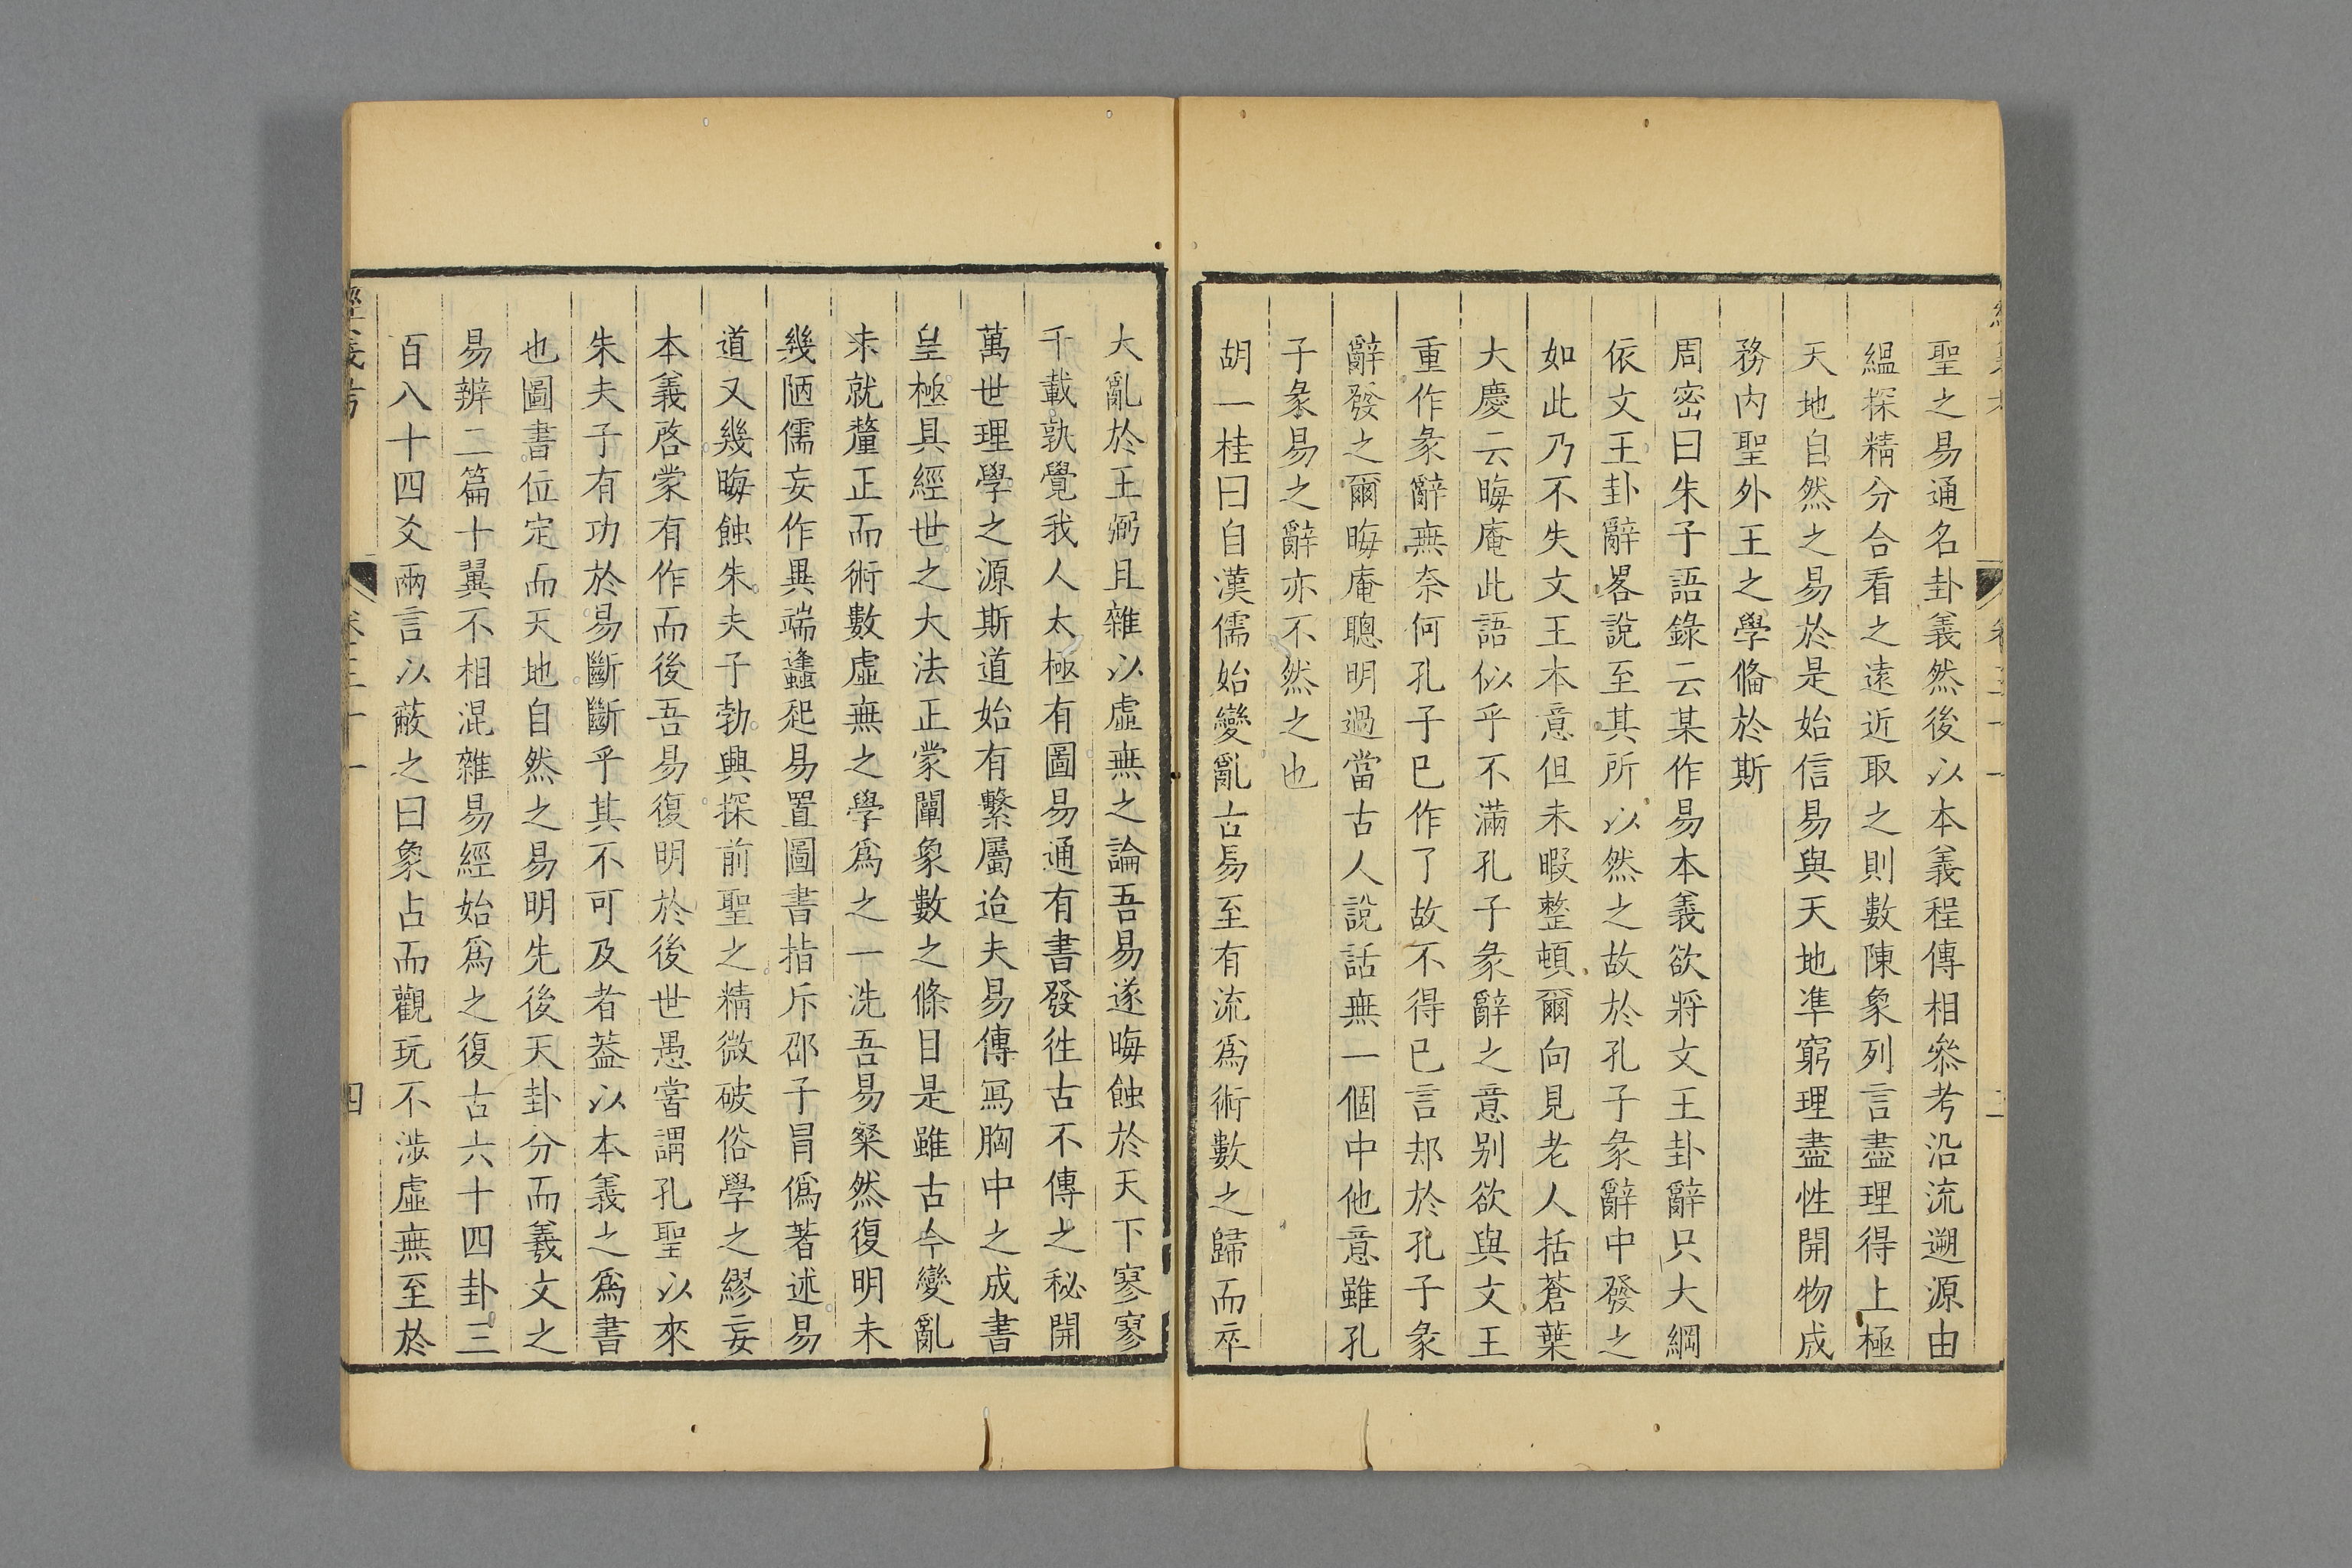 聖之易通名卦義然後以本義程傳相叅考沿流遡源由
縕探精分合看之遠近取之則數陳象列言盡理得上極
天地自然之易於是始信易與天地凖窮理盡性開物成
務内聖外王之學俻於斯
周密曰朱子語錄云某作易本義欲將文王卦辭只大綱
依文王卦辭畧說至其所以然之故於孔子彖辭中發之
如此乃不失文王本意但未暇整頓爾向見老人括蒼葉
大慶云晦庵此語似乎不滿孔子彖辭之意别欲與文王
重作彖辭無奈何孔子已作了故不得已言却於孔子彖
辭發之爾晦庵聰明過當古人說話無一個中他意雖孔
子彖易之辭亦不然之也
胡一桂曰自漢儒始變亂古易至有流爲術數之歸而卒
大亂於王弼且雜以虛無之論吾易遂晦蝕於天下寥寥
千載孰覺我人太極有圖易通有書發徃古不傳之秘開
萬世理學之源斯道始有繫屬迨夫易傳冩胸中之成書
皇極具經世之大法正蒙闡象數之條目是雖古今變亂
未就釐正而術數虛無之學爲之一洗吾易粲然復明未
幾陋儒妄作異端蠭起易置圖書指斥邵子冐僞著述易
道又幾晦蝕朱夫子勃興探前聖之精微破俗學之繆妄
本義啓蒙有作而後吾易復明於後世愚嘗謂孔聖以來
朱夫子有功於易斷斷乎其不可及者葢以本義之爲書
也圖書位定而天地自然之易明先後天卦分而羲文之
易辨二篇十翼不相混雜易經始爲之復古六十四卦三
百八十四爻兩言以蔽之曰象占而觀玩不涉虛無至於
經義考
卷三十一
四